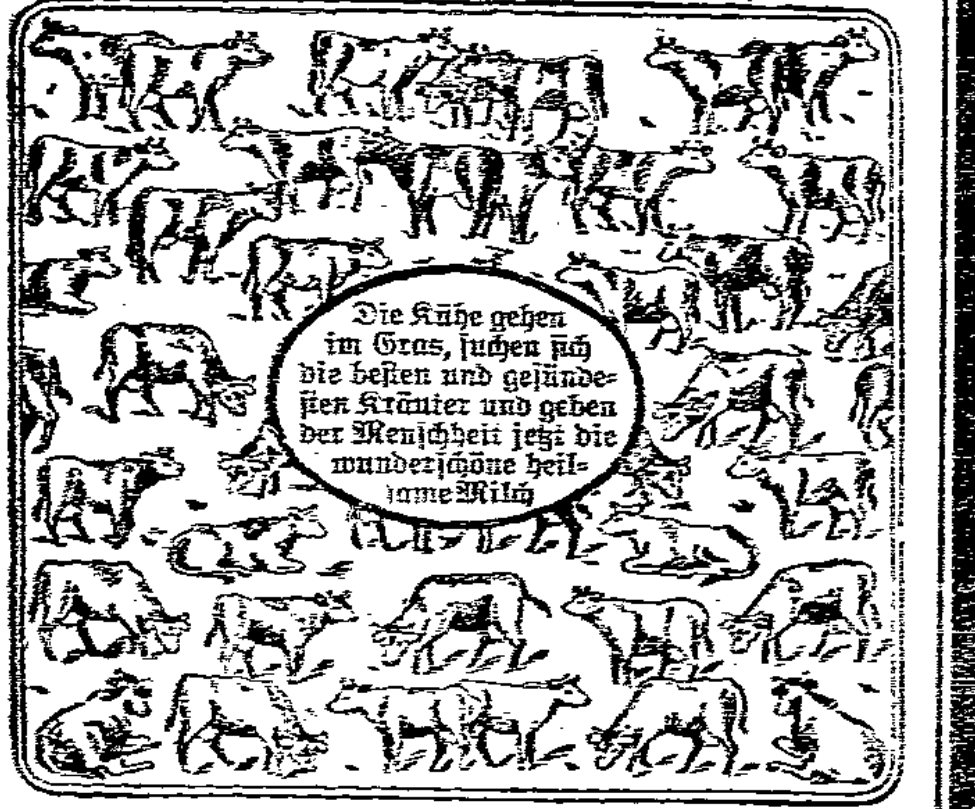 Die Kühe gehen
im Gras, suchen sich
die besten und gesünde=
sten Kräuter und geben
der Menschheit jetzt die
wunderschöne heil=
same Milch